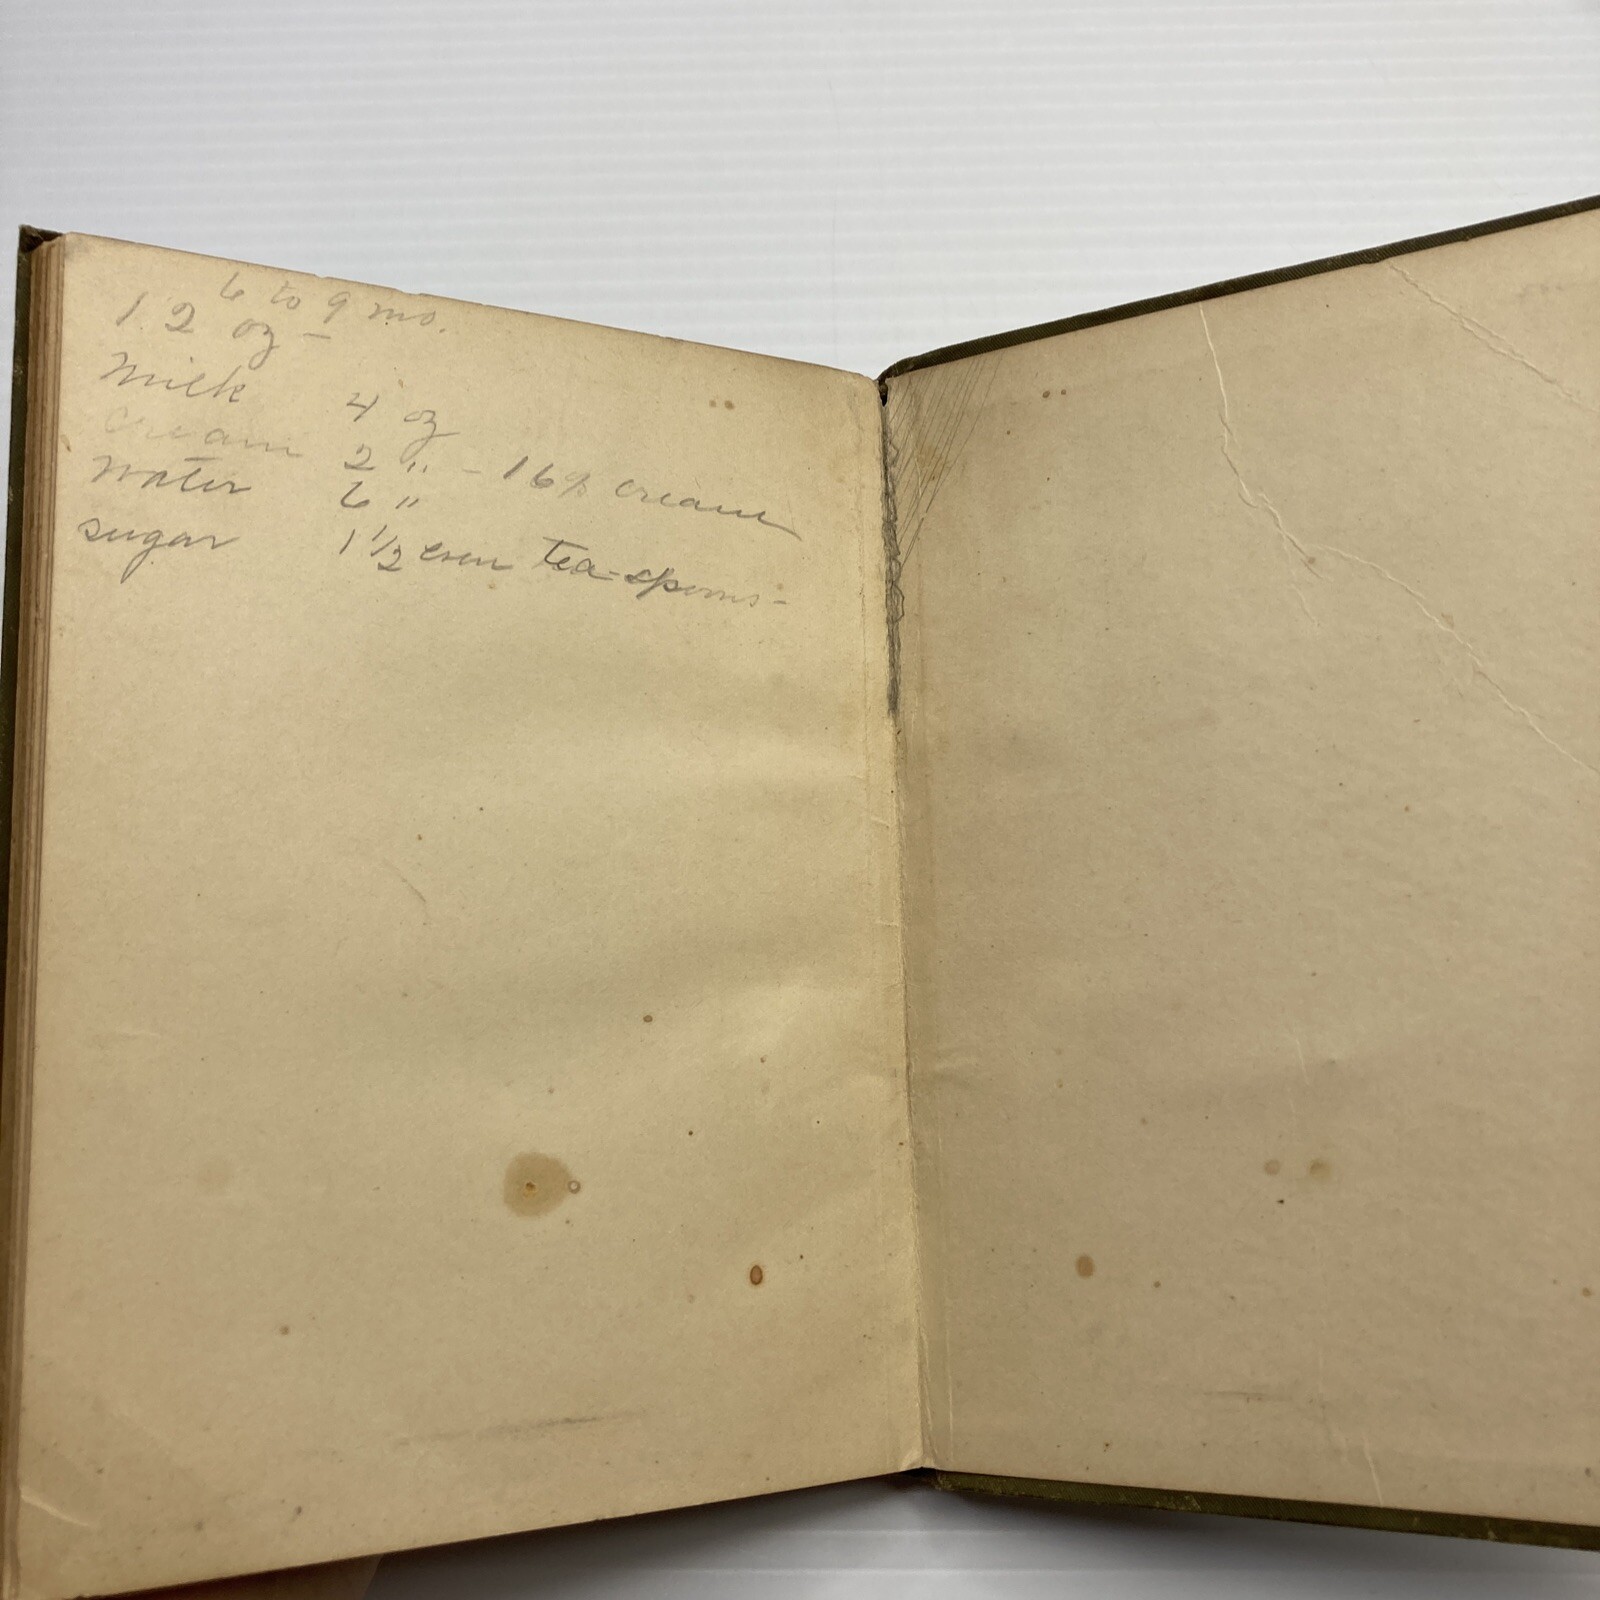 6 to 9 mo.
12 oz –
Milk 4 oz
Cream 2 " – 16% cream
Water 6 "
sugar 1 1/2 even tea-spoons –